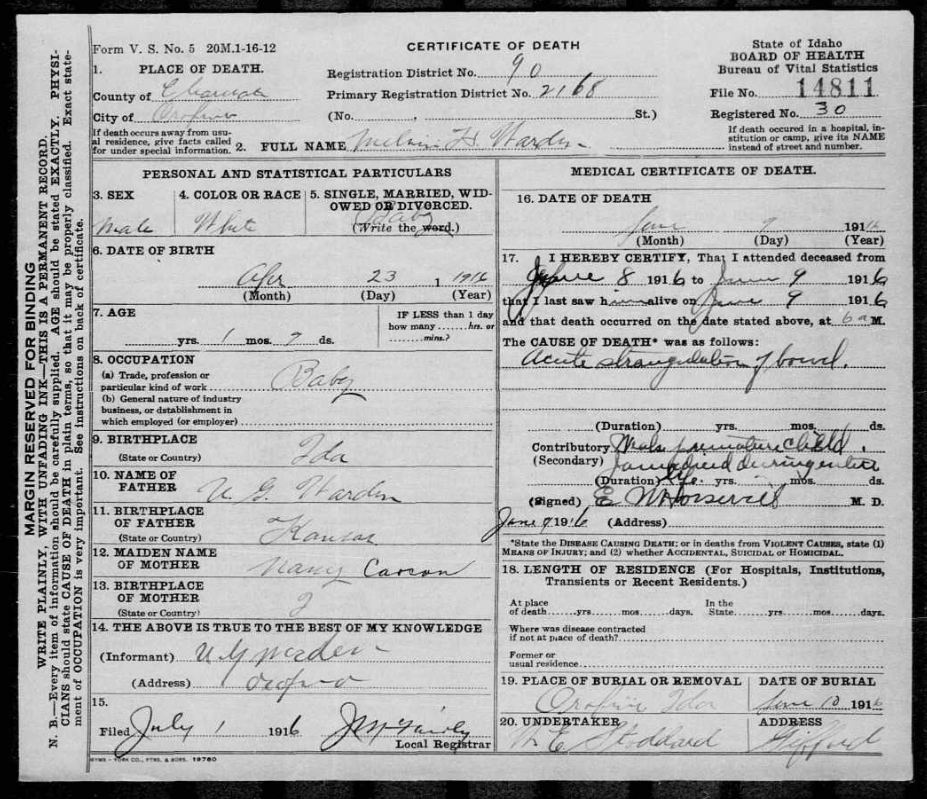 Form V. S. No. 5 20M.1-16-12
CERTIFICATE OF DEATH
State of Idaho
BOARD OF HEALTH
Bureau of Vital Statistics
File No. 14811
Registered No. 30
If death occured in a hospital, institution or camp, give its NAME instead of street and number.
1. PLACE OF DEATH.
County of
City of Orofino
If death occurs away from usual residence, give facts called for under special information.
Registration District No. 90
Primary Registration District No. 2168
(No. St.)
2. FULL NAME Melvin H. Warden
PERSONAL AND STATISTICAL PARTICULARS
3. SEX
Male
4. COLOR OR RACE
White
5. SINGLE, MARRIED, WIDOWED OR DIVORCED.
Baby
(Write the word.)
6. DATE OF BIRTH
Apr 23 1 1916
(Month) (Day) (Year)
7. AGE
yrs. 1 mos. ds.
IF LESS than 1 day
how many hrs. or
mins.?
8. OCCUPATION
(a) Trade, profession or
particular kind of work Baby
(b) General nature of industry
business, or dstablishment in
which employed (or employer)
9. BIRTHPLACE
(State or Country) Ida
10. NAME OF
FATHER U. G. Warden
11. BIRTHPLACE
OF FATHER
(State or Country) Kansas
12. MAIDEN NAME
OF MOTHER Nancy Carson
13. BIRTHPLACE
OF MOTHER
(State or Country) ?
14. THE ABOVE IS TRUE TO THE BEST OF MY KNOWLEDGE
(Informant) U G Warden
(Address) Orofino
15.
Filed July 1 1916
Local Registrar
MEDICAL CERTIFICATE OF DEATH.
16. DATE OF DEATH
June 9 1916
(Month) (Day) (Year)
17. I HEREBY CERTIFY, That I attended deceased from
June 8 1916 to June 9 1916
that I last saw him alive on June 9 1916
and that death occurred on the date stated above, at 6 a M.
The CAUSE OF DEATH* was as follows:
Acute strangulation of bowel.
(Duration) yrs. mos. ds.
Contributory Male premature child.
(Secondary) Jaundiced during entire
(Duration) life. yrs. mos. ds.
(Signed) E M. D.
June 9 1916 (Address)
*State the DISEASE CAUSING DEATH; or in deaths from VIOLENT CAUSES, state (1)
MEANS OF INJURY; and (2) whether ACCIDENTAL, SUICIDAL or HOMICIDAL.
18. LENGTH OF RESIDENCE (For Hospitals, Institutions,
Transients or Recent Residents.)
At place
of death yrs. mos. days.
In the
State yrs. mos. days.
Where was disease contracted
if not at place of death?
Former or
usual residence
19. PLACE OF BURIAL OR REMOVAL
Orofino Ida
DATE OF BURIAL
June 10 1916
20. UNDERTAKER
Stoddard
ADDRESS
Gifford
MARGIN RESERVED FOR BINDING
WRITE PLAINLY, WITH UNFADING INK—THIS IS A PERMANENT RECORD.
N. B.—Every item of information should be carefully supplied. AGE should be stated EXACTLY. PHYSI-
CIANS should state CAUSE OF DEATH in plain terms, so that it may be properly classified. Exact state-
ment of OCCUPATION is very important. See instructions on back of certificate.